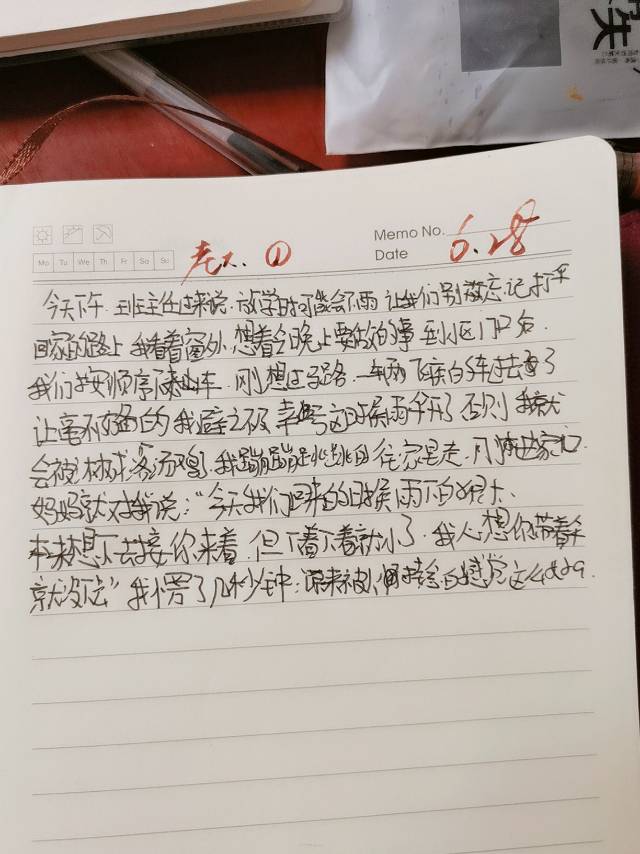 失
Memo No.
Date 6.28
Mo Tu We Th Fr Sa Su
①
今天下午 班主任过来说 放学时可能会下雨 让我们别忘记打伞
回家的路上 我看着窗外 想着今晚上要做的事 到小区门口后
我们按顺序下车 刚想过马路 一辆飞疾的车过去了
让毫不的我避之不及 幸好这时候雨伞开了 否则我就
会被淋成落汤鸡 我蹦蹦跳跳的往家里走 刚进家门
妈妈就对我说:“今天我们回来的时候雨下的很大
本来想下去接你来着 但下着下着就小了 我心想你带着伞
就没去” 我愣了几秒钟:原来被人的感觉这么好